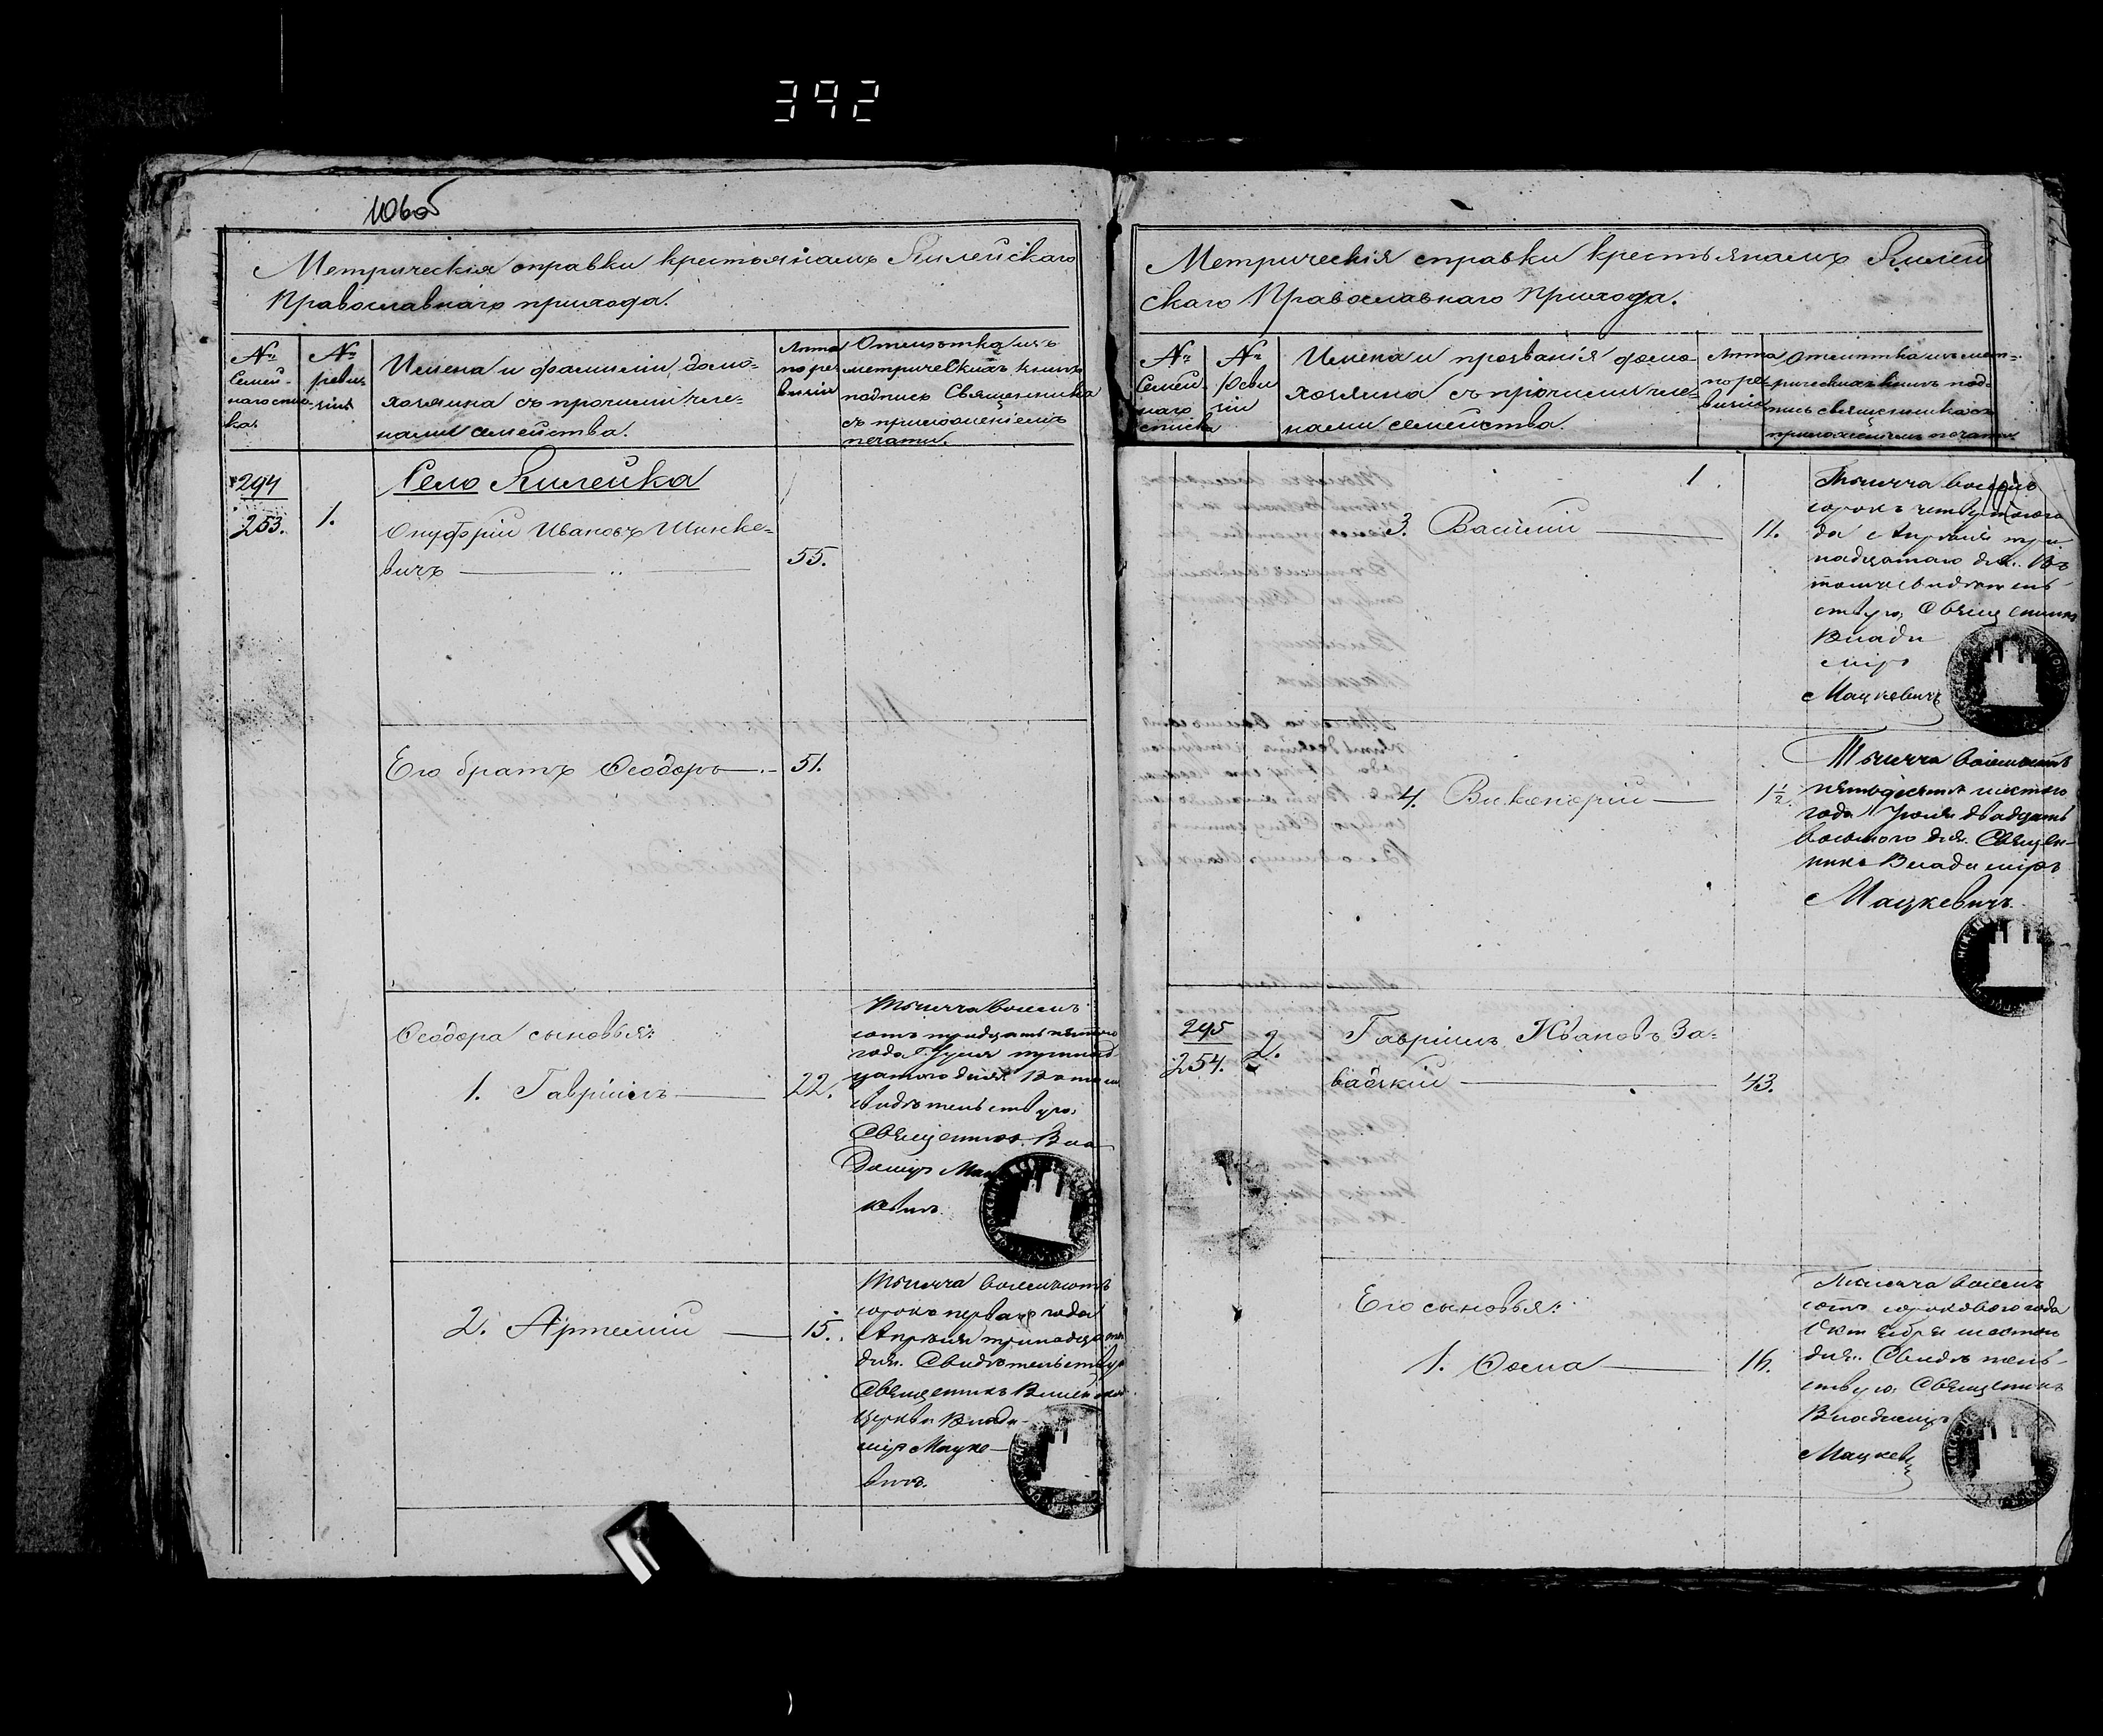 392
106об
Метрическія справки крестьянамъ Вилейскаго
Православнаго прихода.
№ Семей-наго списка.
№ ревизіи
Имена и фамиліи домо-
хозяина съ прочими чле-
нами семейства.
Лѣта по ревизіи
Отмѣтка изъ
метрическихъ книгъ
подпись Священника
съ приложеніемъ
печати.
294
253.
1.
Село Вилейка
Онуфрій Ивановъ Шинке-
вичъ
55.
Его братъ Ѳеодоръ
51.
Ѳеодора сыновья:
1. Гавріилъ
22.
Тысяча восемь
сотъ тридцать пятого
года
дня. В томъ
свидѣтельствую.
Священникъ Вла
димиръ Мац
кевичъ.
2. Артемій
15.
Тысяча восемьсотъ
сорокъ перваго года
Апрѣля тринадцатаго
дня. Свидѣтельствую
Священникъ
Церкви Влади-
міръ Мацке-
вичъ.
Метрическія справки крестьянамъ Вилей
скаго Православнаго Прихода.
№ Семей наго списка
№ Реви зіи
Имена и прозванія домо-
хозяина съ прочими чле-
нами семейства.
Лѣта по ре визіи
Отмѣтка изъ мет-
рическихъ книгъ под-
пись священника съ
приложеніемъ печати
3. Василій
11.
Тысяча восемь
сорокъ
да Апрѣля три
надцатаго дня. Въ
томъ свидѣтель-
ствую, Священникъ
Влади
міръ
Мацкевичъ
4. Викторій
1½.
Тысяча восемьсотъ
пятьдесятъ шестого
года Іюля двадцать
восьмого дня. Священ-
никъ Владиміръ
Мацкевичъ.
295
254.
2.
Гавріилъ Ивановъ За-
вадскій
43.
Его сыновья:
1. Ѳома
16.
Тысяча восемь
сотъ сорокового года
Октября шестого
дня. Свидѣтель-
ствую, Священникъ
Владиміръ
Мацкев